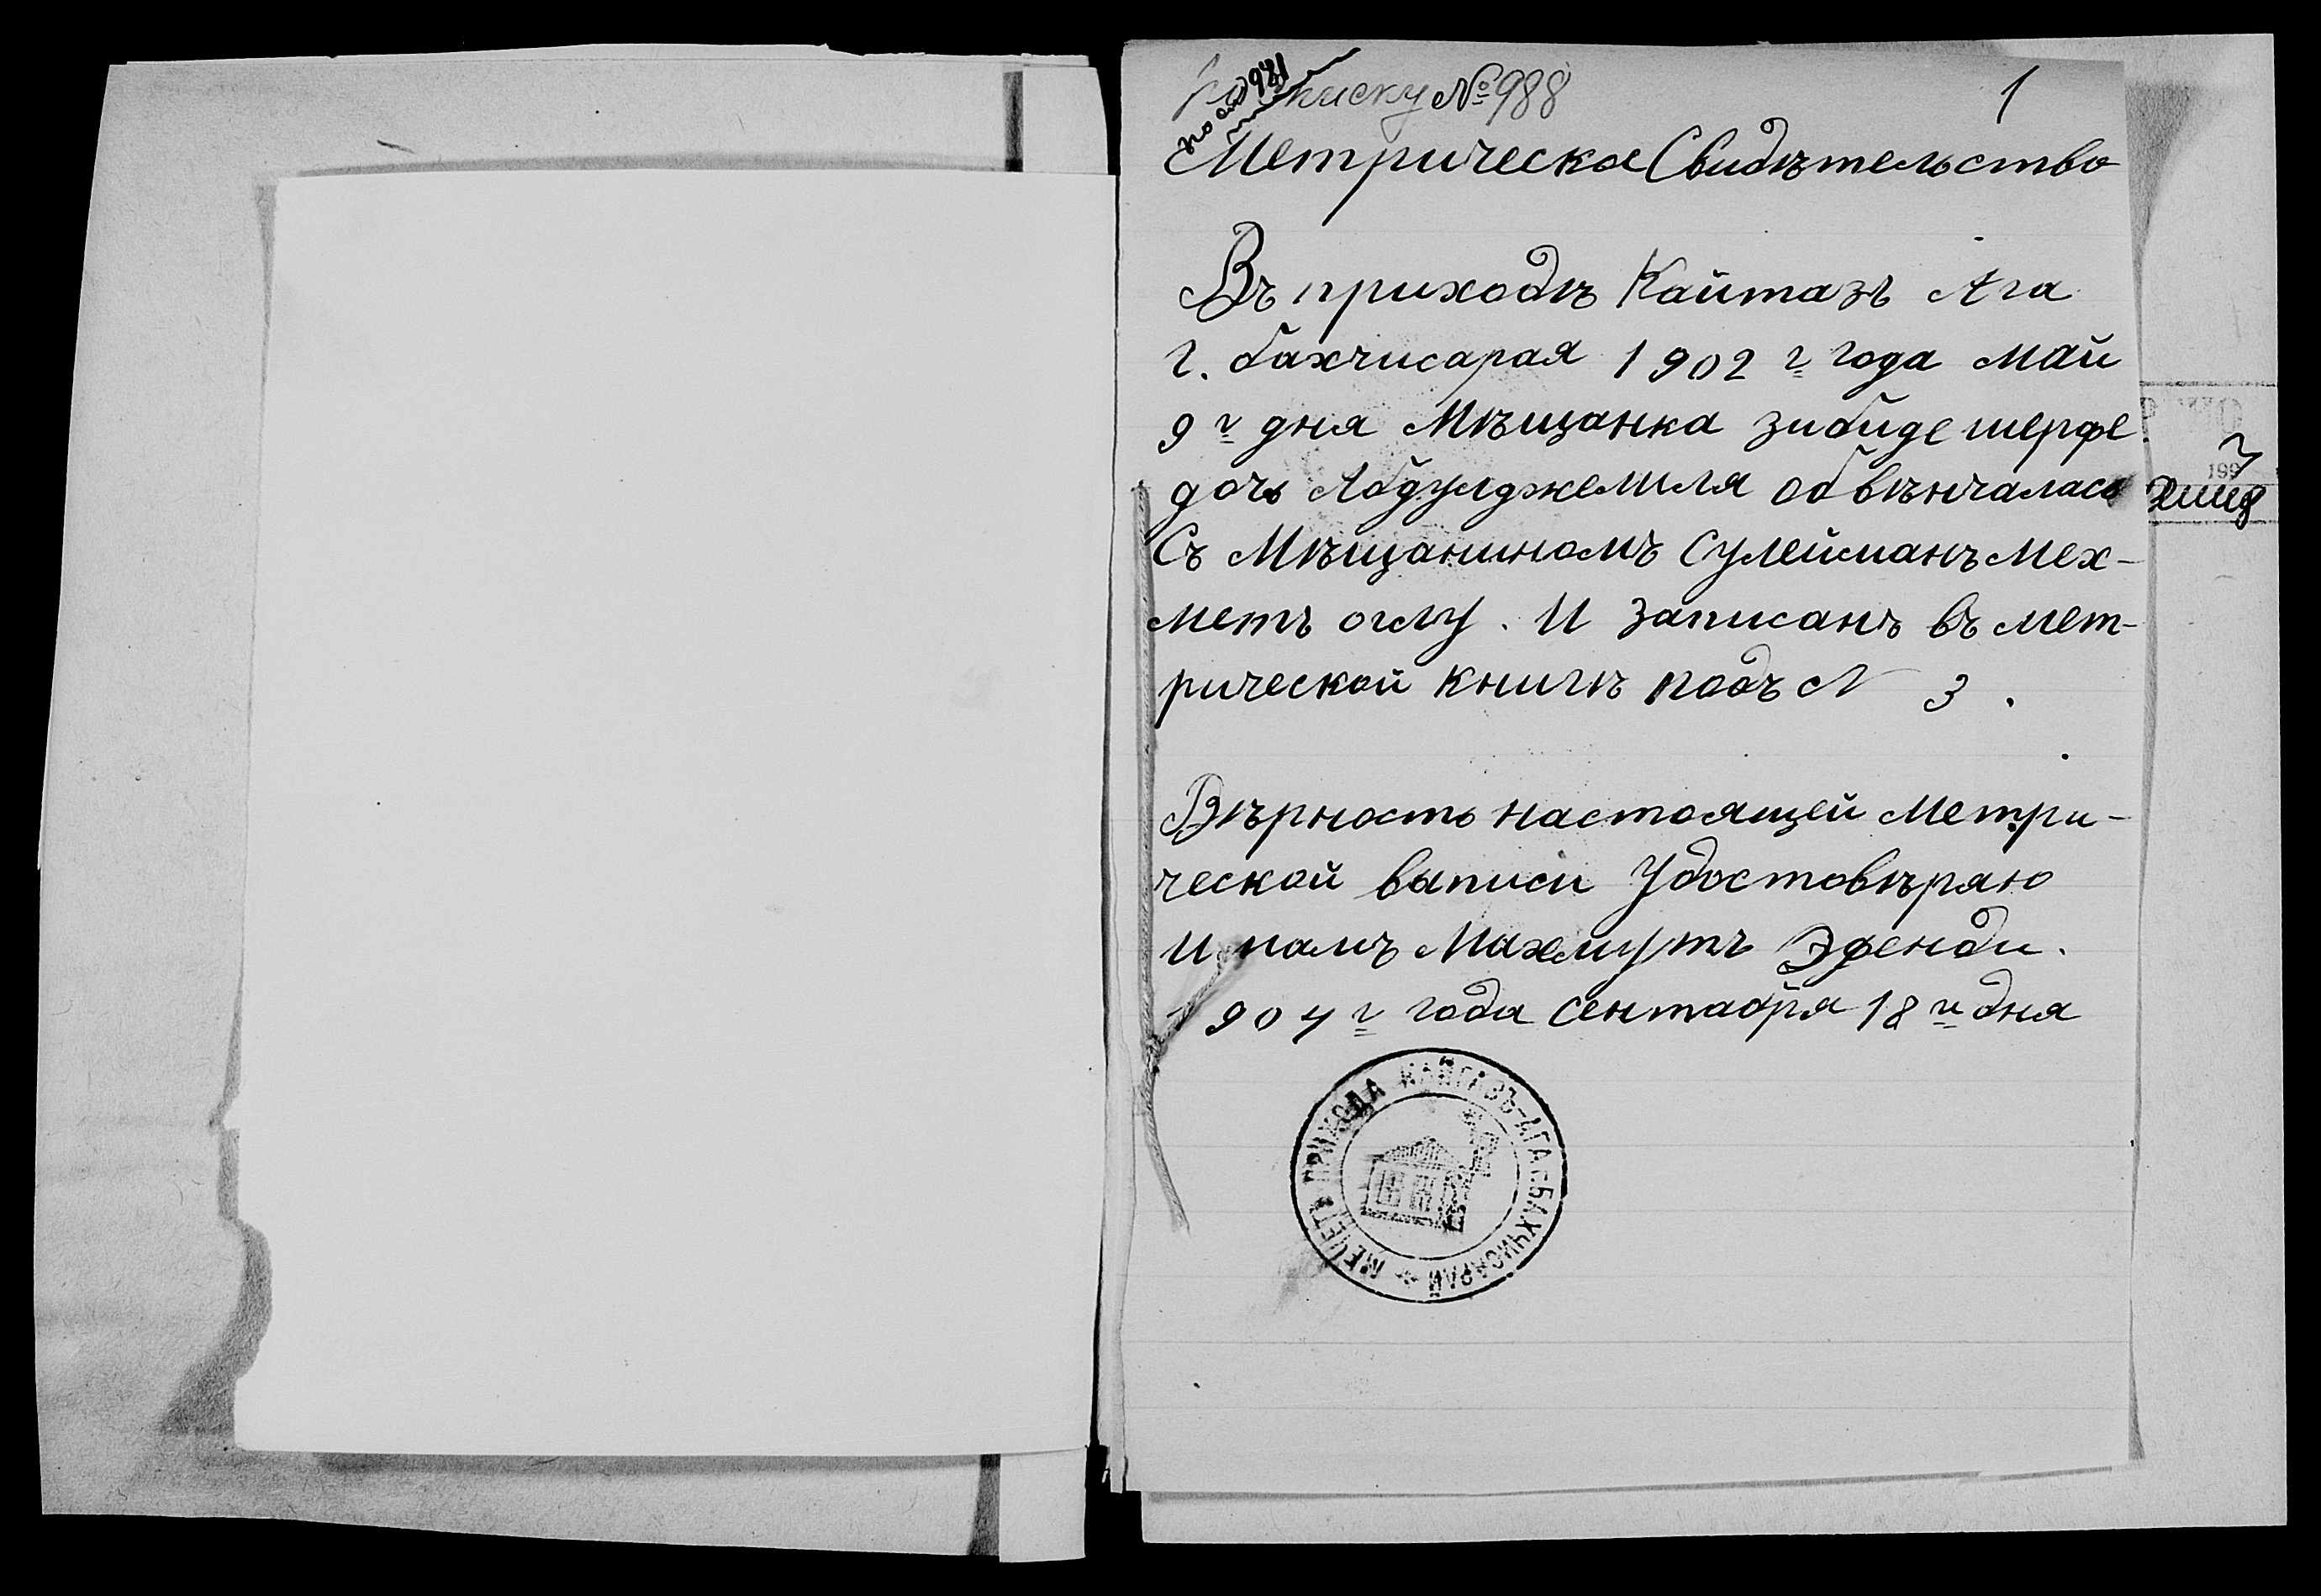 расписку № 988
1
Метрическое Свидѣтельство
Въ приходѣ Кайтазъ Ага
г. бахчисарая 1902 г года май
9 г дня Мѣщанка зибиде шерфе
дочь Абдулджемиля обвѣнчалась
Съ Мѣщаниномъ Сулейманъ Мех-
метъ оглу. И записанъ въ мет-
рической книгѣ подъ N 3.
Вѣрность настоящей метри-
ческой выписи Удостовѣряю
Имамъ Махмутъ Эфенди.
1904 г года Сентября 18 го дня
МЕЧЕТЬ ПРИХОДА КАЙТАЗЪ-АГА БАХЧИСАРАЙ